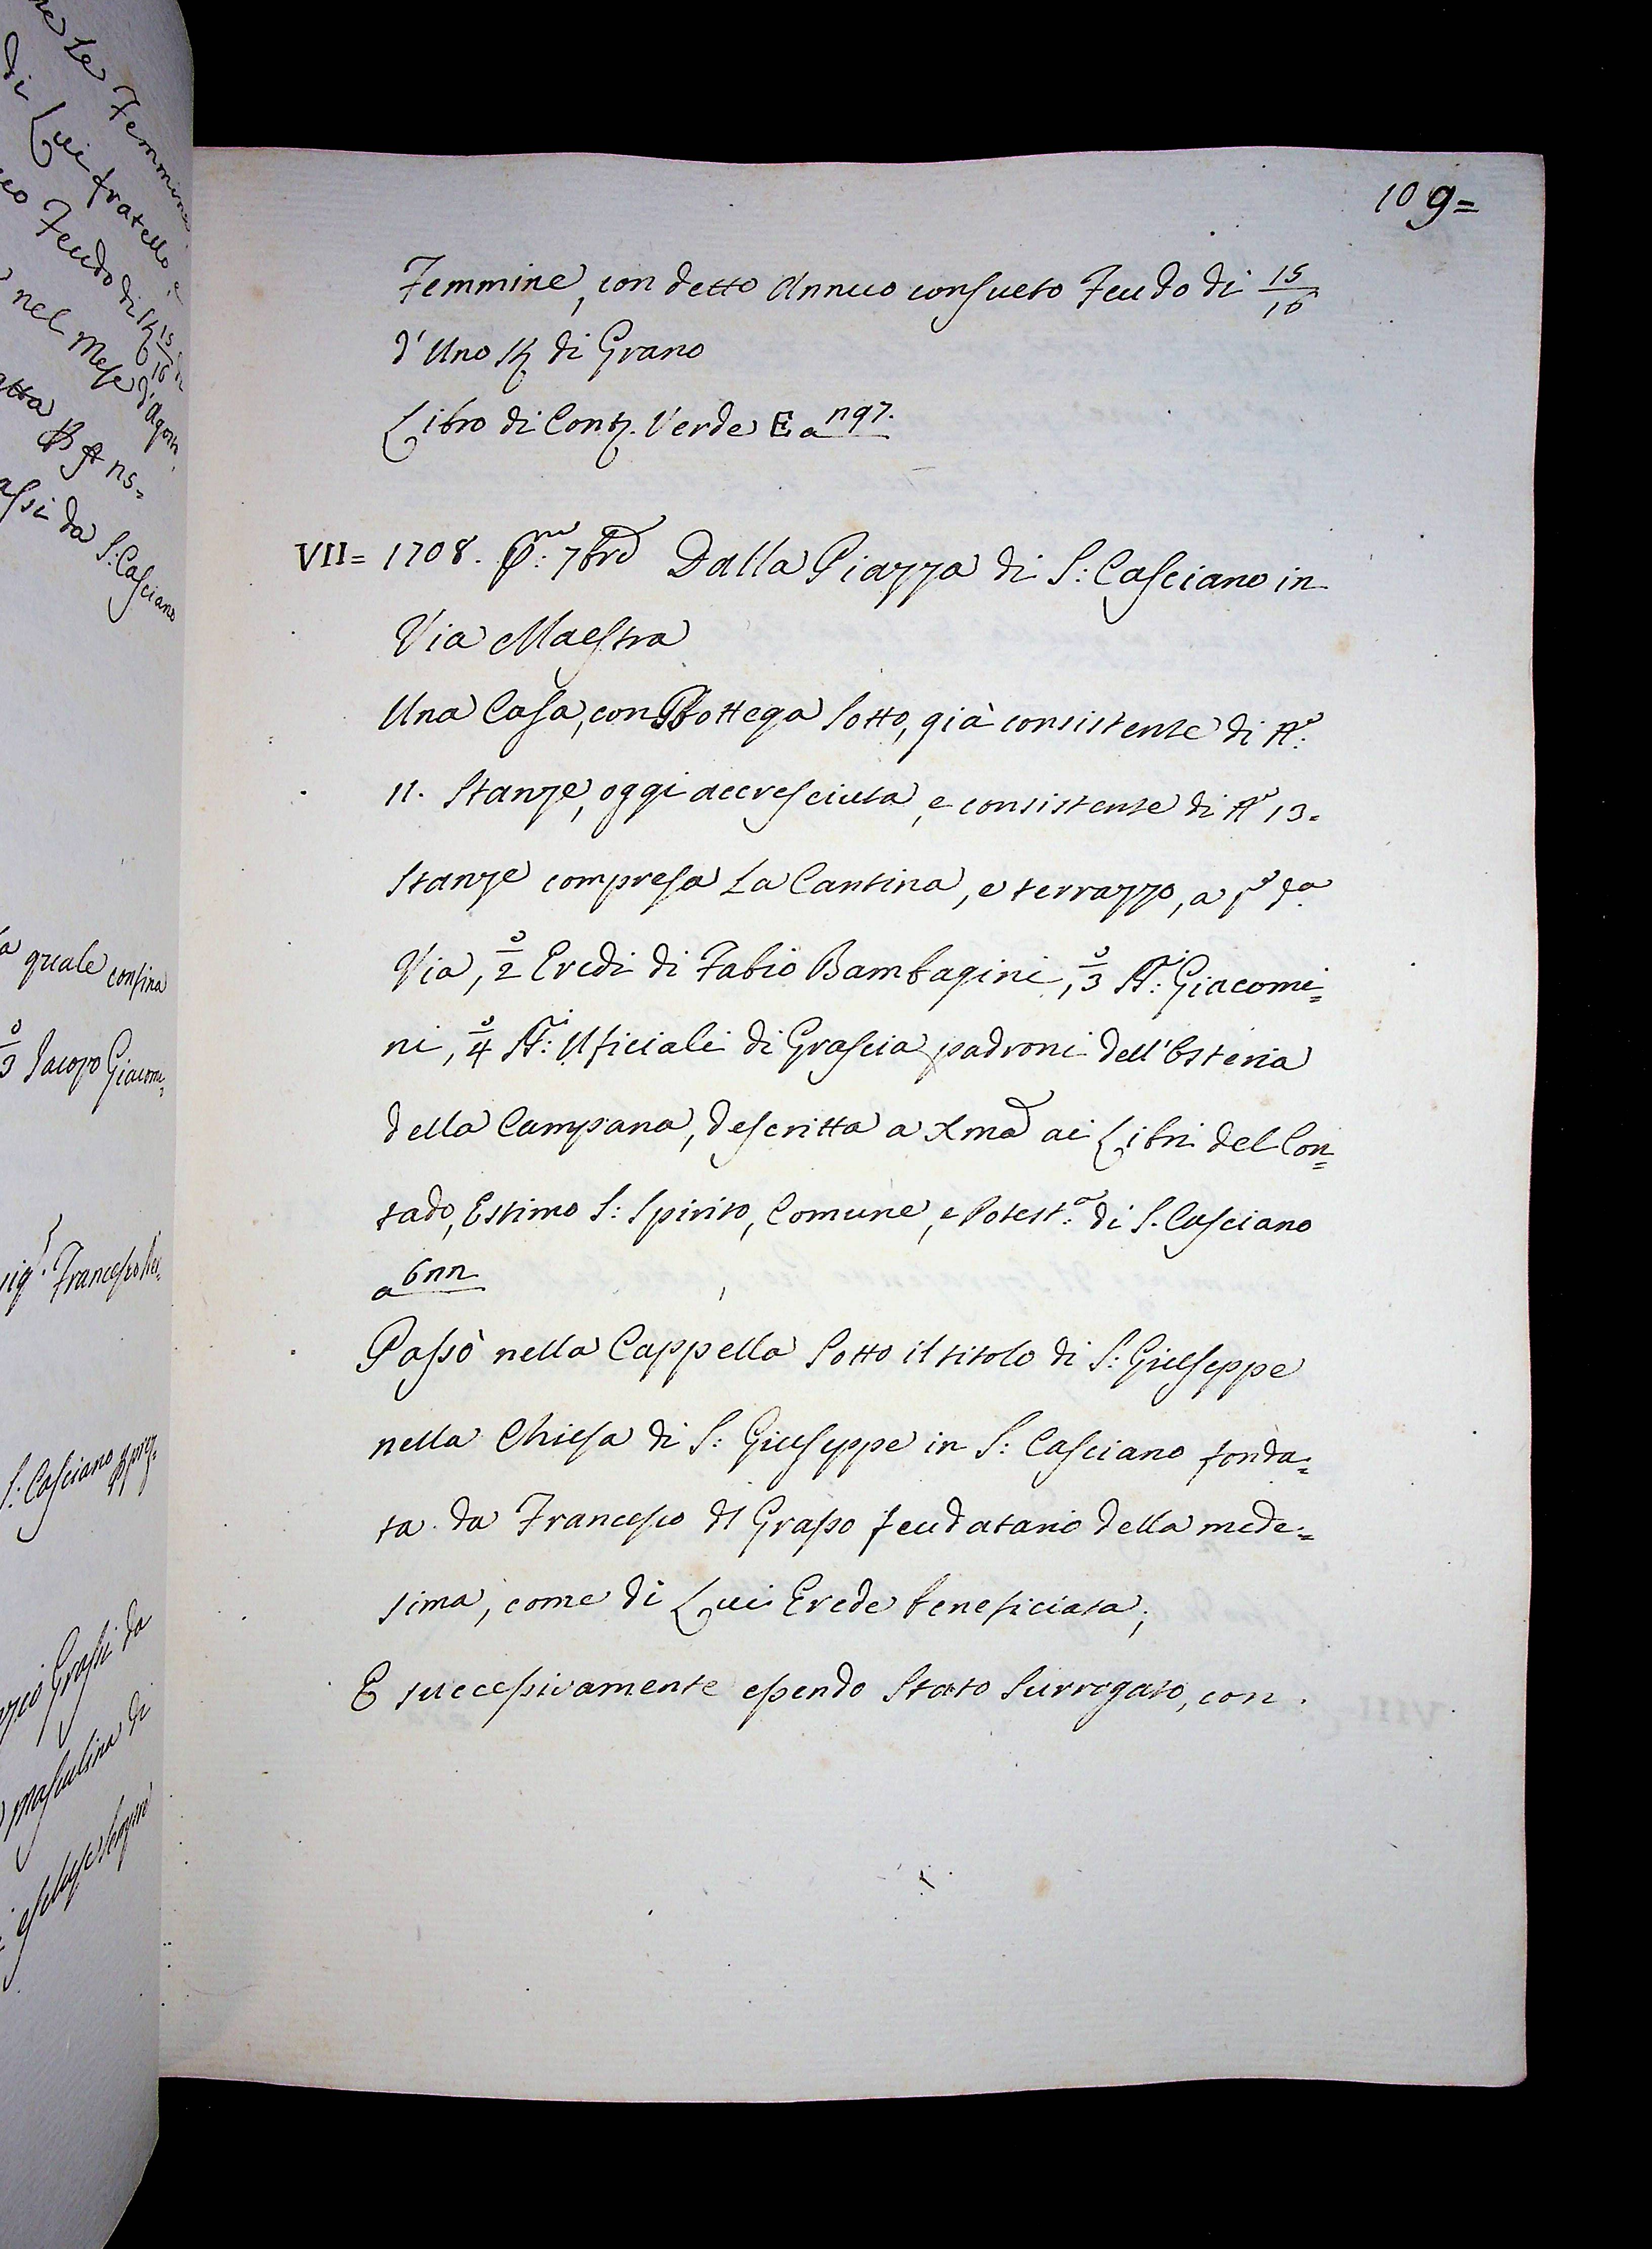 109=
Femmine, con detto Annuo consueto Feudo di 15/16
d'Uno di Grano
Libro di Verde E a 1197.
VII= 1708. P.mo 7bre Dalla Piazza di S: Casciano in
Via Maestra
Una Casa, con Bottega sotto, già consistente di N.o
11. Stanze, oggi accresciuta, e consistente di N.o 13.
stanze compresa La Cantina, e terrazzo, a p.o d.a
Via, 2.o Eredi di Fabio Bambagini, 3.o SS.i: Giacomi=
ni, 4.o SS.i: Uficiali di Grascia padroni dell'Osteria
della Campana, descritta a Xma ai Libri del Con=
tado, Estimo S: Spirito, Comune, e Potest.a di S. Casciano
a 611
Passò nella Cappella sotto il titolo di S: Giuseppe
nella Chiesa di S: Giuseppe in S: Casciano fonda=
ta da Francesco del Grasso feudatario della mede=
sima, come di Lui Erede beneficiata;
E successivamente essendo stato surrogato, con
di Lui fratello
Feudo di 15/16
nel Mese d'Agosto
da S: Casciano
quale confina
3.o Jacopo Giacomi=
Sig.r Francesco
S: Casciano
Grassi da
masculina di